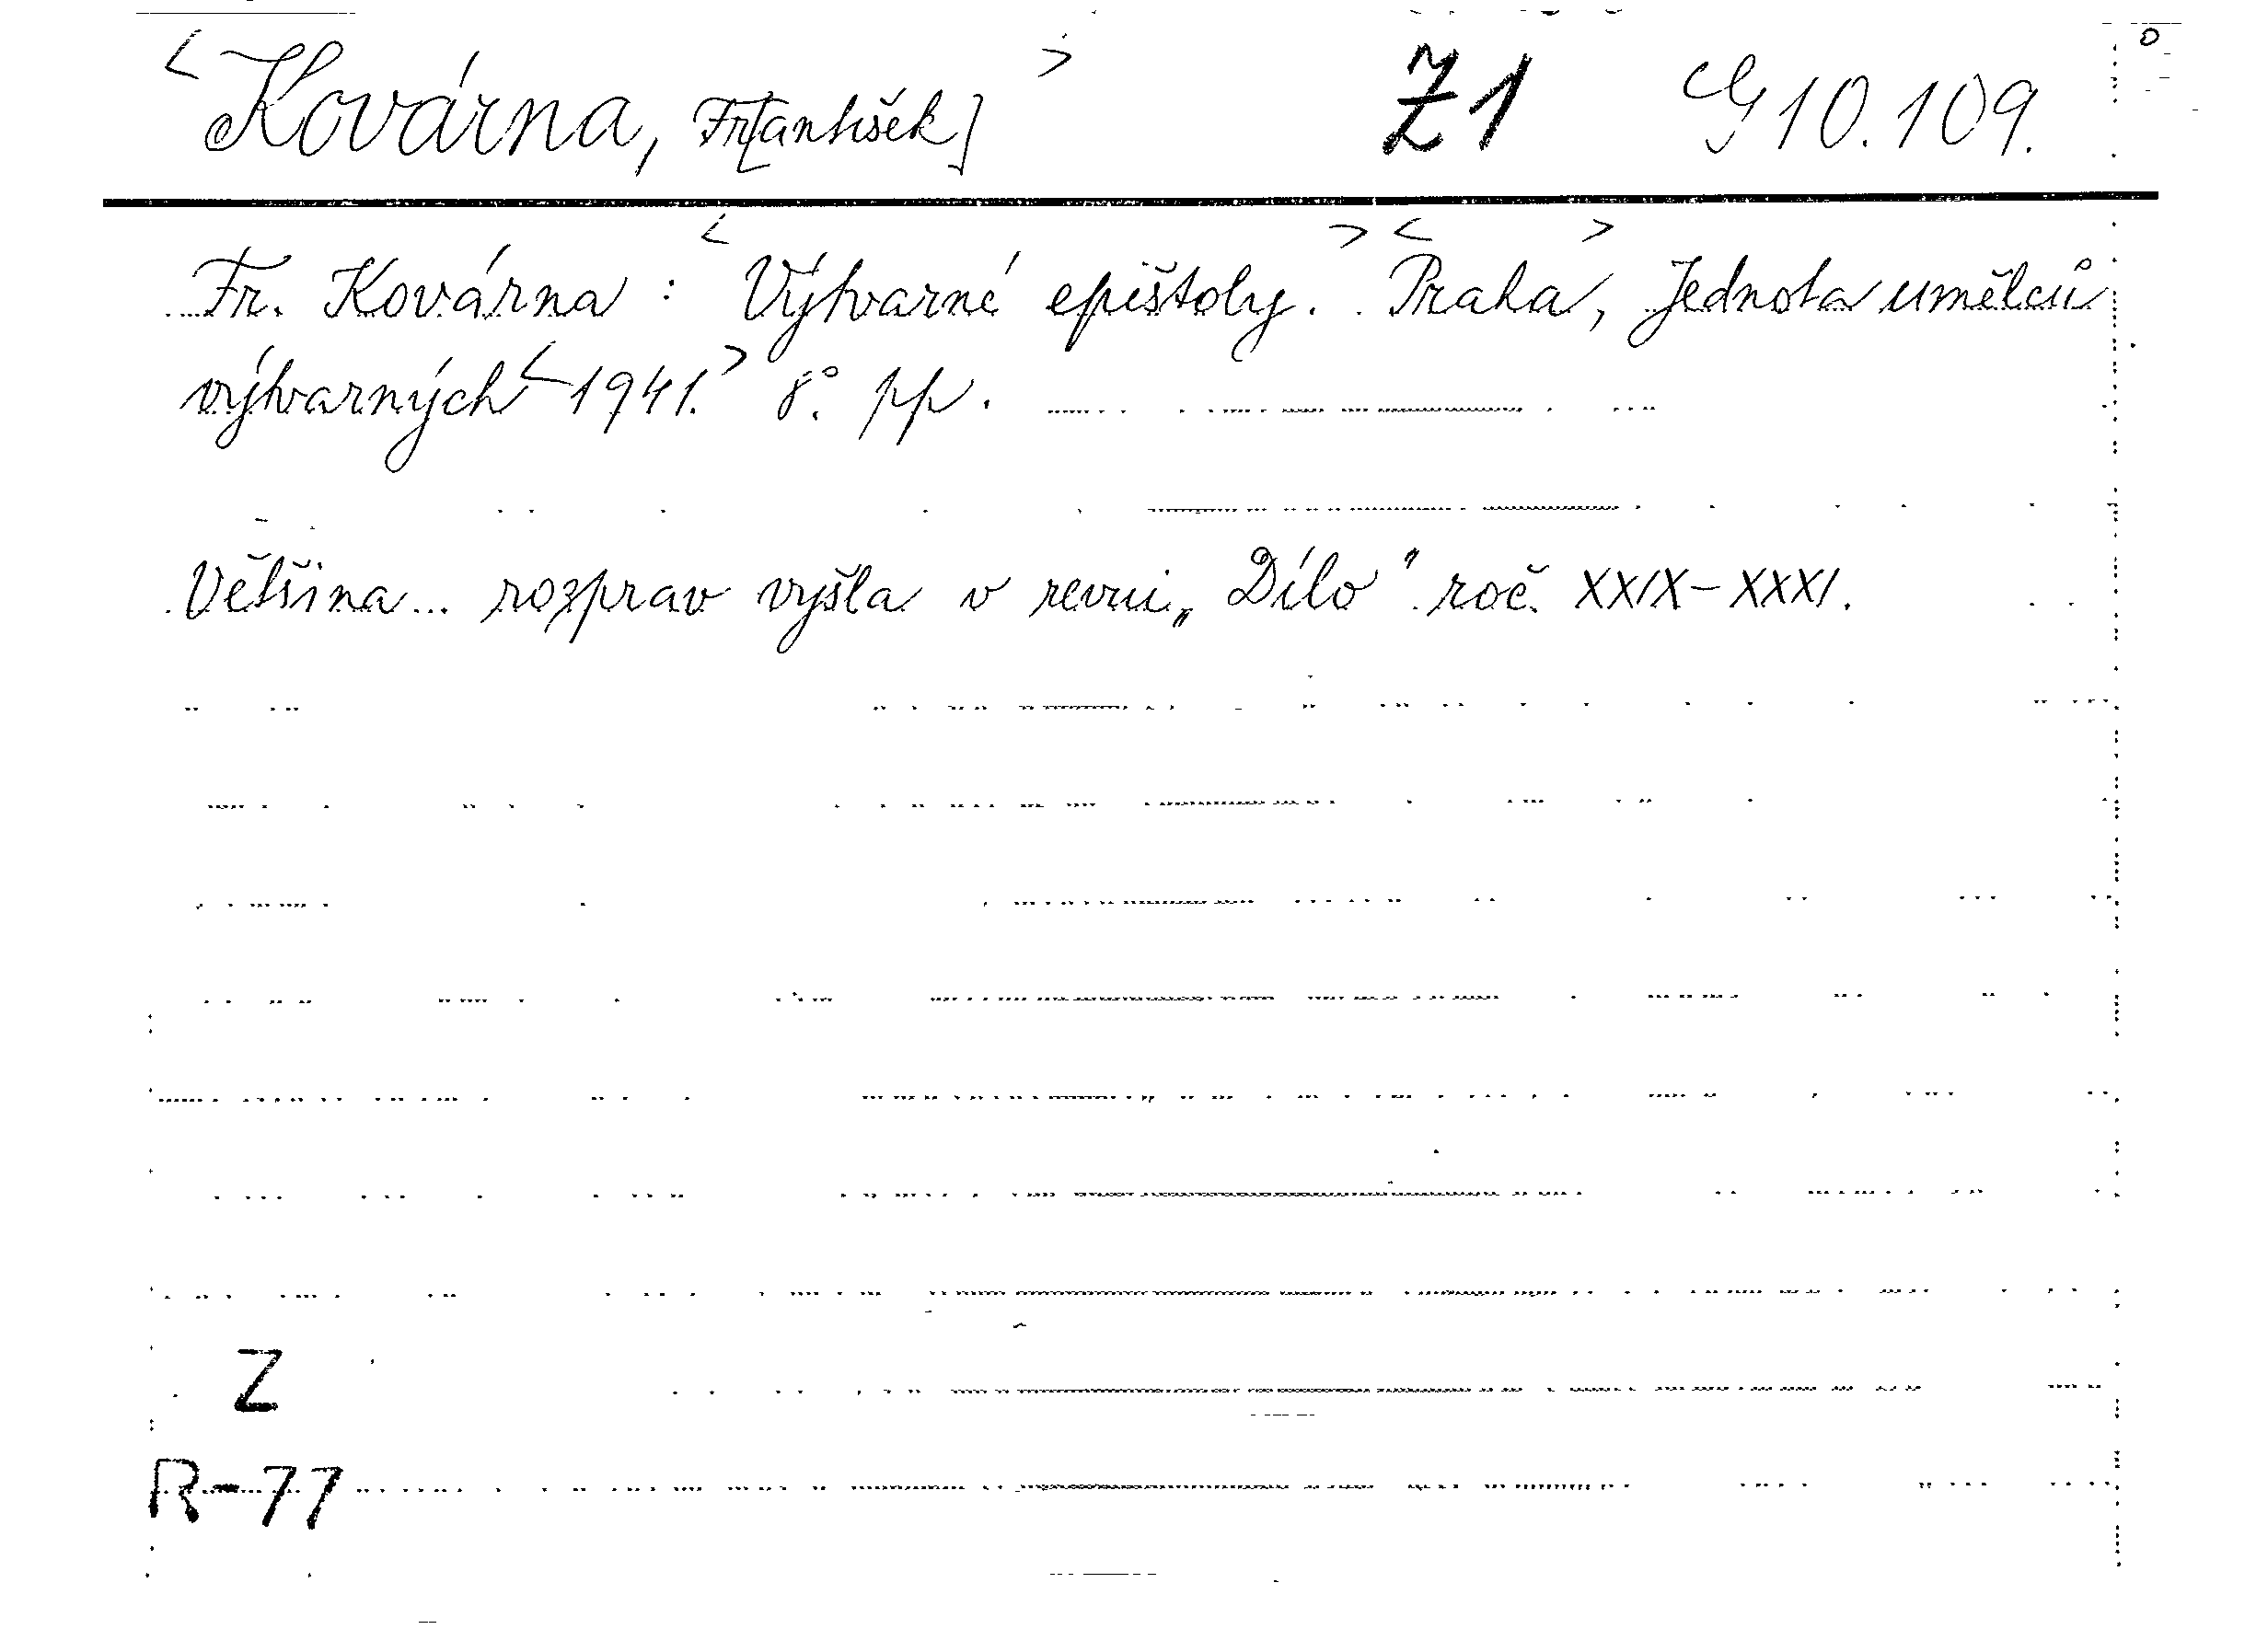 <Kovárna, Fr[antišek]> Z1 G 10.109.
Fr. Kovárna : <Výtvarné epištoly.> <Praha>, Jednota umělců
výtvarných <1941.> 8°. pp.
Většina... rozprav vyšla v revui „Dílo" roč. XXIX-XXXI.
Z
R-77